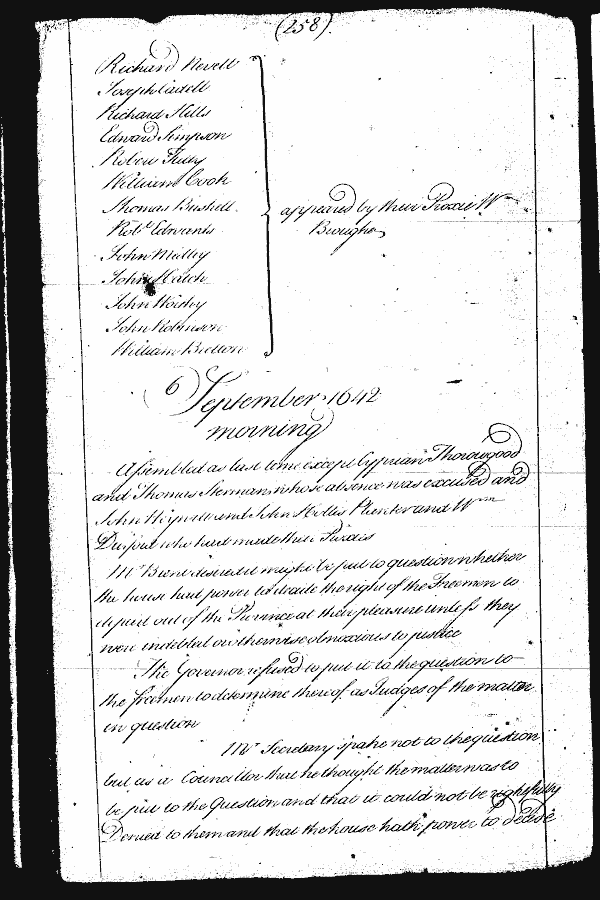 (258)
Richard Nevell
Joseph Cadell
Richard Hills
Edward Simpson
Robert Tutty
William Cook
Thomas Bushell
Robt Edwards
John Medley
John Hatch
John Worthy
John Robinson
William Bretton
appeared by their Proxie Wm
Broughe
6 September 1642
morning
Assembled as last time except Cyprian Thorowgood
and Thomas Sterman whose absence was excused and
John and John Hollis Planter and Wm
who had made their Proxies
Mr Brent desired it might be put to question whether
the house had power to decide the right of the Freemen to
depart out of the Province at their pleasure unless they
were indebted or otherwise obnoxious to justice
The Governor refused to put it to the question or to
the freemen to determine thereof as Judges of the matter
in question
Mr Secretary spake not to the question
but as a Councillor that he thought the matter was to
be put to the Question and that it could not be rightfully
Denied to them and that the house hath power to decide